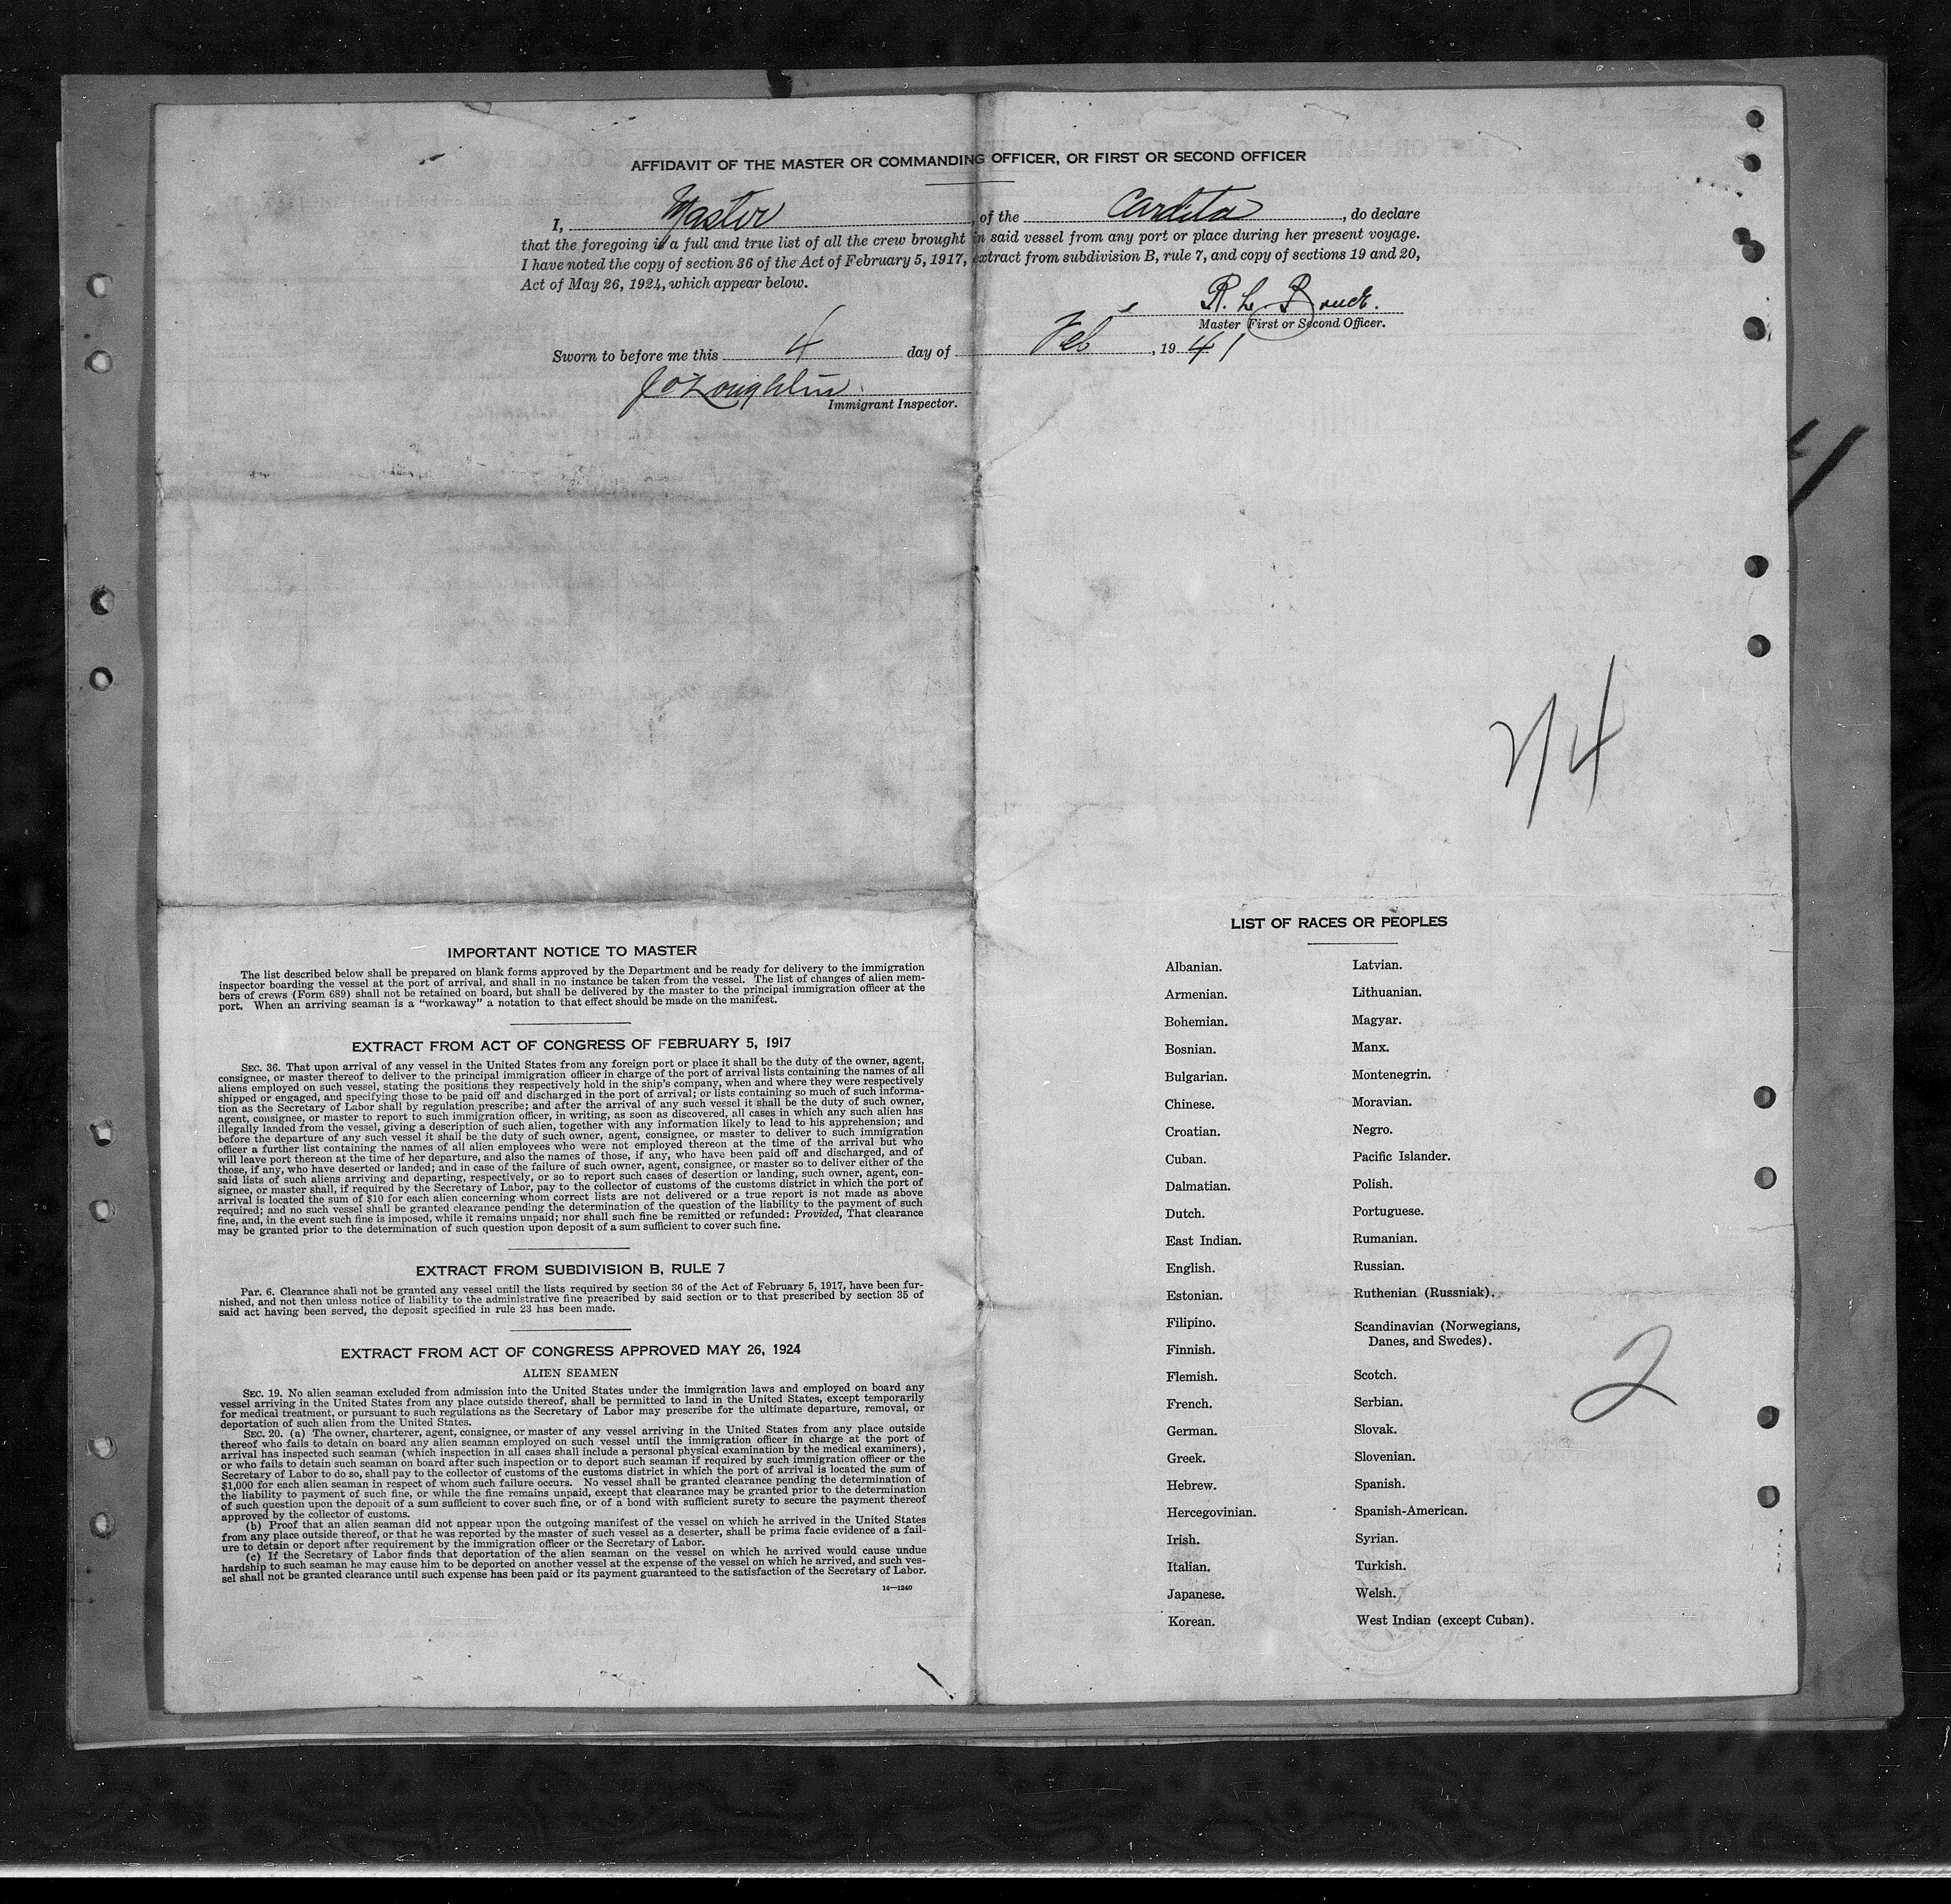 AFFIDAVIT OF THE MASTER OR COMMANDING OFFICER, OR FIRST OR SECOND OFFICER
I, Master, of the Cardita, do declare
that the foregoing is a full and true list of all the crew brought in said vessel from any port or place during her present voyage.
I have noted the copy of section 36 of the Act of February 5, 1917, extract from subdivision B, rule 7, and copy of sections 19 and 20,
Act of May 26, 1924, which appear below.
R. L.
Master First or Second Officer.
Sworn to before me this 4 day of Feb, 1941
J O'Loughlin
Immigrant Inspector.
2/4
IMPORTANT NOTICE TO MASTER
The list described below shall be prepared on blank forms approved by the Department and be ready for delivery to the immigration
inspector boarding the vessel at the port of arrival, and shall in no instance be taken from the vessel. The list of changes of alien mem-
bers of crews (Form 689) shall not be retained on board, but shall be delivered by the master to the principal immigration officer at the
port. When an arriving seaman is a "workaway" a notation to that effect should be made on the manifest.
EXTRACT FROM ACT OF CONGRESS OF FEBRUARY 5, 1917
SEC. 36. That upon arrival of any vessel in the United States from any foreign port or place it shall be the duty of the owner, agent,
consignee, or master thereof to deliver to the principal immigration officer in charge of the port of arrival lists containing the names of all
aliens employed on such vessel, stating the positions they respectively hold in the ship's company, when and where they were respectively
shipped or engaged, and specifying those to be paid off and discharged in the port of arrival; or lists containing so much of such informa-
tion as the Secretary of Labor shall by regulation prescribe; and after the arrival of any such vessel it shall be the duty of such owner,
agent, consignee, or master to report to such immigration officer, in writing, as soon as discovered, all cases in which any such alien has
illegally landed from the vessel, giving a description of such alien, together with any information likely to lead to his apprehension; and
before the departure of any such vessel it shall be the duty of such owner, agent, consignee, or master to deliver to such immigration
officer a further list containing the names of all alien employees who were not employed thereon at the time of the arrival but who
will leave port thereon at the time of her departure, and also the names of those, if any, who have been paid off and discharged, and of
those, if any, who have deserted or landed; and in case of the failure of such owner, agent, consignee, or master so to deliver either of the
said lists of such aliens arriving and departing, respectively, or so to report such cases of desertion or landing, such owner, agent, con-
signee, or master shall, if required by the Secretary of Labor, pay to the collector of customs of the customs district in which the port of
arrival is located the sum of $10 for each alien concerning whom correct lists are not delivered or a true report is not made as above
required; and no such vessel shall be granted clearance pending the determination of the question of the liability to the payment of such
fine, and, in the event such fine is imposed, while it remains unpaid; nor shall such fine be remitted or refunded: Provided, That clearance
may be granted prior to the determination of such question upon deposit of a sum sufficient to cover such fine.
EXTRACT FROM SUBDIVISION B, RULE 7
Par. 6. Clearance shall not be granted any vessel until the lists required by section 36 of the Act of February 5, 1917, have been fur-
nished, and not then unless notice of liability to the administrative fine prescribed by said section or to that prescribed by section 35 of
said act having been served, the deposit specified in rule 23 has been made.
EXTRACT FROM ACT OF CONGRESS APPROVED MAY 26, 1924
ALIEN SEAMEN
SEC. 19. No alien seaman excluded from admission into the United States under the immigration laws and employed on board any
vessel arriving in the United States from any place outside thereof, shall be permitted to land in the United States, except temporarily
for medical treatment, or pursuant to such regulations as the Secretary of Labor may prescribe for the ultimate departure, removal, or
deportation of such alien from the United States.
SEC. 20. (a) The owner, charterer, agent, consignee, or master of any vessel arriving in the United States from any place outside
thereof who fails to detain on board any alien seaman employed on such vessel until the immigration officer in charge at the port of
arrival has inspected such seaman (which inspection in all cases shall include a personal physical examination by the medical examiners),
or who fails to detain such seaman on board after such inspection or to deport such seaman if required by such immigration officer or the
Secretary of Labor to do so, shall pay to the collector of customs of the customs district in which the port of arrival is located the sum of
$1,000 for each alien seaman in respect of whom such failure occurs. No vessel shall be granted clearance pending the determination of
the liability to payment of such fine, or while the fine remains unpaid, except that clearance may be granted prior to the determination
of such question upon the deposit of a sum sufficient to cover such fine, or of a bond with sufficient surety to secure the payment thereof
approved by the collector of customs.
(b) Proof that an alien seaman did not appear upon the outgoing manifest of the vessel on which he arrived in the United States
from any place outside thereof, or that he was reported by the master of such vessel as a deserter, shall be prima facie evidence of a fail-
ure to detain or deport after requirement by the immigration officer or the Secretary of Labor.
(c) If the Secretary of Labor finds that deportation of the alien seaman on the vessel on which he arrived would cause undue
hardship to such seaman he may cause him to be deported on another vessel at the expense of the vessel on which he arrived, and such ves-
sel shall not be granted clearance until such expense has been paid or its payment guaranteed to the satisfaction of the Secretary of Labor.
14—1240
LIST OF RACES OR PEOPLES
Albanian.
Armenian.
Bohemian.
Bosnian.
Bulgarian.
Chinese.
Croatian.
Cuban.
Dalmatian.
Dutch.
East Indian.
English.
Estonian.
Filipino.
Finnish.
Flemish.
French.
German.
Greek.
Hebrew.
Hercegovinian.
Irish.
Italian.
Japanese.
Korean.
Latvian.
Lithuanian.
Magyar.
Manx.
Montenegrin.
Moravian.
Negro.
Pacific Islander.
Polish.
Portuguese.
Rumanian.
Russian.
Ruthenian (Russniak).
Scandinavian (Norwegians,
Danes, and Swedes).
Scotch.
Serbian.
Slovak.
Slovenian.
Spanish.
Spanish-American.
Syrian.
Turkish.
Welsh.
West Indian (except Cuban).
2